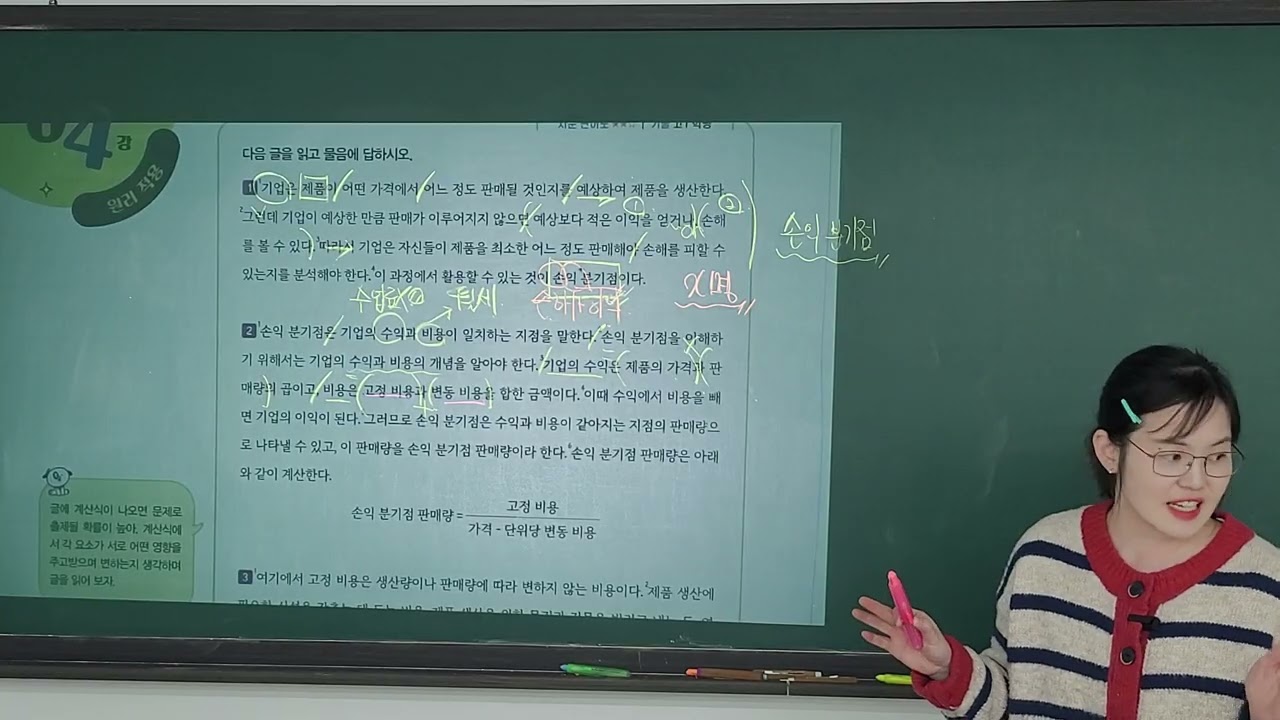 04강
원리 적용
지문 난이도 ★★☆ | 기출 고1 학평
다음 글을 읽고 물음에 답하시오.
1 ¹기업은 제품이 어떤 가격에서 어느 정도 판매될 것인지를 예상하여 제품을 생산한다.
²그런데 기업이 예상한 만큼 판매가 이루어지지 않으면 예상보다 적은 이익을 얻거나 손해
를 볼 수 있다. ³따라서 기업은 자신들이 제품을 최소한 어느 정도 판매해야 손해를 피할 수
있는지를 분석해야 한다. ⁴이 과정에서 활용할 수 있는 것이 손익 분기점이다.
① ②
손익 분기점
지명
2 ¹손익 분기점은 기업의 수익과 비용이 일치하는 지점을 말한다. ²손익 분기점을 이해하
기 위해서는 기업의 수익과 비용의 개념을 알아야 한다. ³기업의 수익은 제품의 가격과 판
매량의 곱이고, 비용은 고정 비용과 변동 비용을 합한 금액이다. ⁴이때 수익에서 비용을 빼
면 기업의 이익이 된다. ⁵그러므로 손익 분기점은 수익과 비용이 같아지는 지점의 판매량으
로 나타낼 수 있고, 이 판매량을 손익 분기점 판매량이라 한다. ⁶손익 분기점 판매량은 아래
와 같이 계산한다.
손익 분기점 판매량 = 고정 비용
가격 - 단위당 변동 비용
글에 계산식이 나오면 문제로
출제될 확률이 높아. 계산식에
서 각 요소가 서로 어떤 영향을
주고받으며 변하는지 생각하며
글을 읽어 보자.
3 ¹여기에서 고정 비용은 생산량이나 판매량에 따라 변하지 않는 비용이다. ²제품 생산에